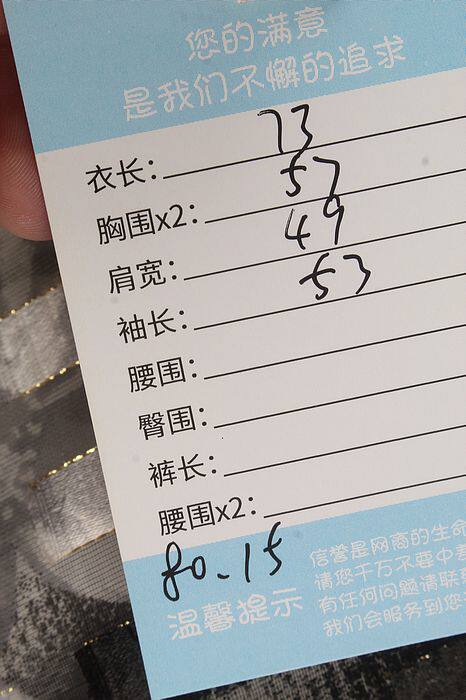 您的满意
是我们不懈的追求
衣长: 73
胸围x2: 57
肩宽: 49
袖长: 53
腰围:
臀围:
裤长:
腰围x2:
80.15
温馨提示
信誉是网商的生命
请您千万不要中差
有任何问题请联系
我们会服务到您